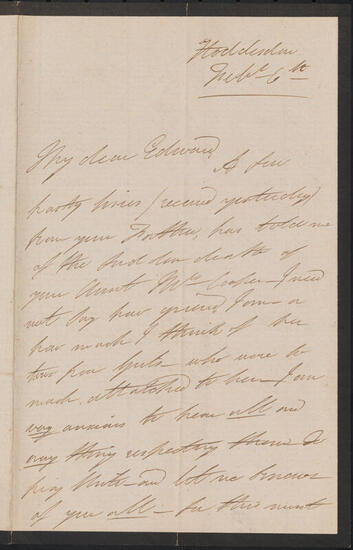 Hoddesdon
Feby 6th
My dear Edward,
A few
hasty lines (received yesterday)
from your Father, has told me
of the sudden death of
your Aunt Mrs Cooper – I need
not say how grieved I am – or
how much I think of her
two poor girls who were so
much attached to her – I am
very anxious to hear all and
any thing respecting them
pray write – and let me know
of you all – for this must